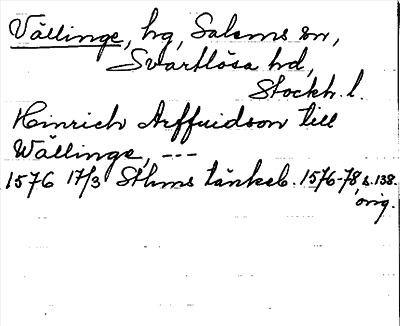 Vällinge, hg, Salems sn,
Svartlösa hd,
Stockh. l.
Hinrich Arffuidson till
Wällinge, ---
1576 17/3 Sthms tänkeb. 1576-78, s. 138.
orig.